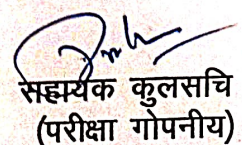 सहायक कुलसचि
(परीक्षा गोपनीय)